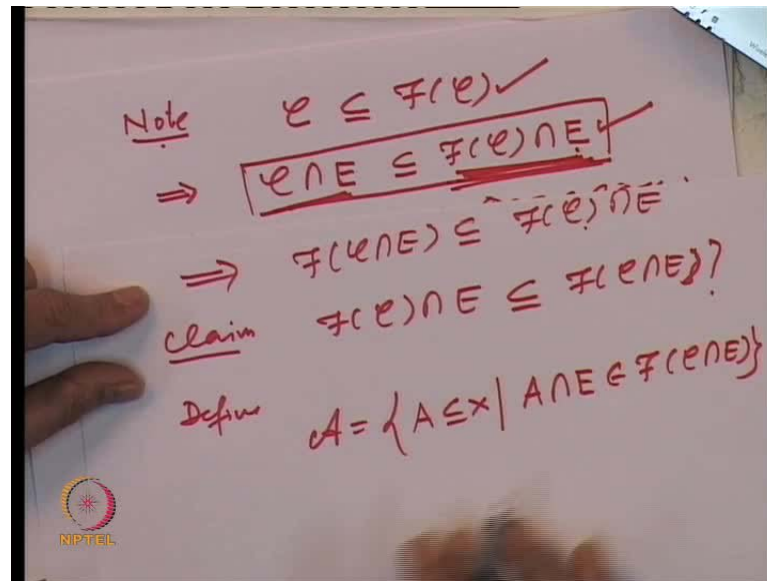 Note C ⊆ F(C) ✓
⇒ C ∩ E ⊆ F(C) ∩ E ✓
⇒ F(C ∩ E) ⊆ F(C) ∩ E
Claim F(C) ∩ E ⊆ F(C ∩ E)?
Define A = {A ⊆ X | A ∩ E ∈ F(C ∩ E)}
NPTEL